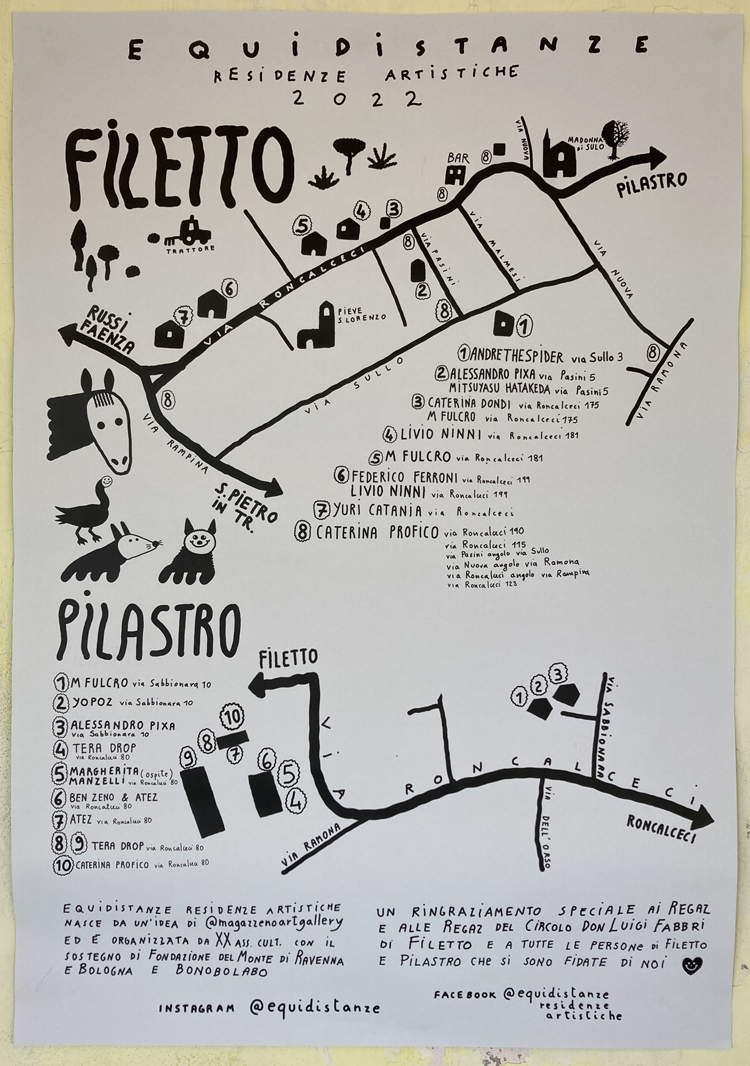 EQUIDISTANZE
RESIDENZE ARTISTICHE
2022
FILETTO
TRATTORE
BAR
VIA NUOVA
MADONNA
di SULO
PILASTRO
RUSSI
FAENZA
VIA RONCALCECI
PIEVE
S. LORENZO
VIA PASINI
VIA MALMESI
VIA NUOVA
VIA SULLO
VIA RAMONA
VIA RAMPINA
S. PIETRO
IN TR.
5
4
3
8
8
8
2
8
1
7
6
8
8
1 ANDRETHESPIDER via Sullo 3
2 ALESSANDRO PIXA via Pasini 5
MITSUYASU HATAKEDA via Pasini 5
3 CATERINA DONDI via Roncalceci 175
M FULCRO via Roncalceci 175
4 LIVIO NINNI via Roncalceci 181
5 M FULCRO via Roncalceci 181
6 FEDERICO FERRONI via Roncalceci 199
LIVIO NINNI via Roncalceci 199
7 YURI CATANIA via Roncalceci
8 CATERINA PROFICO via Roncalceci 190
via Roncalceci 115
via Pasini angolo via Sullo
via Nuova angolo via Ramona
via Roncalceci angolo via Rampina
via Roncalceci 123
PILASTRO
1 M FULCRO via Sabbionara 10
2 YOPOZ via Sabbionara 10
3 ALESSANDRO PIXA
via Sabbionara 10
4 TERA DROP
via Roncalceci 80
5 MARGHERITA (ospite)
MANZELLI via Roncalceci 80
6 BEN ZENO & ATEZ
via Roncalceci 80
7 ATEZ via Roncalceci 80
8 9 TERA DROP via Roncalceci 80
10 CATERINA PROFICO via Roncalceci 80
FILETTO
10
8
7
9
6
5
4
1 2 3
VIA RONCALCECI
VIA SABBIONARA
VIA RAMONA
VIA DELL'ORSO
RONCALCECI
EQUIDISTANZE RESIDENZE ARTISTICHE
NASCE DA UN'IDEA DI @magazzenoartgallery
ED È ORGANIZZATA DA XX ASS. CULT. CON IL
SOSTEGNO DI FONDAZIONE DEL MONTE DI RAVENNA
E BOLOGNA E BONOBOLABO
UN RINGRAZIAMENTO SPECIALE AI REGAZ
E ALLE REGAZ DEL CIRCOLO DON LUIGI FABBRI
DI FILETTO E A TUTTE LE PERSONE DI FILETTO
E PILASTRO CHE SI SONO FIDATE DI NOI
INSTAGRAM @equidistanze
FACEBOOK @equidistanze
residenze
artistiche